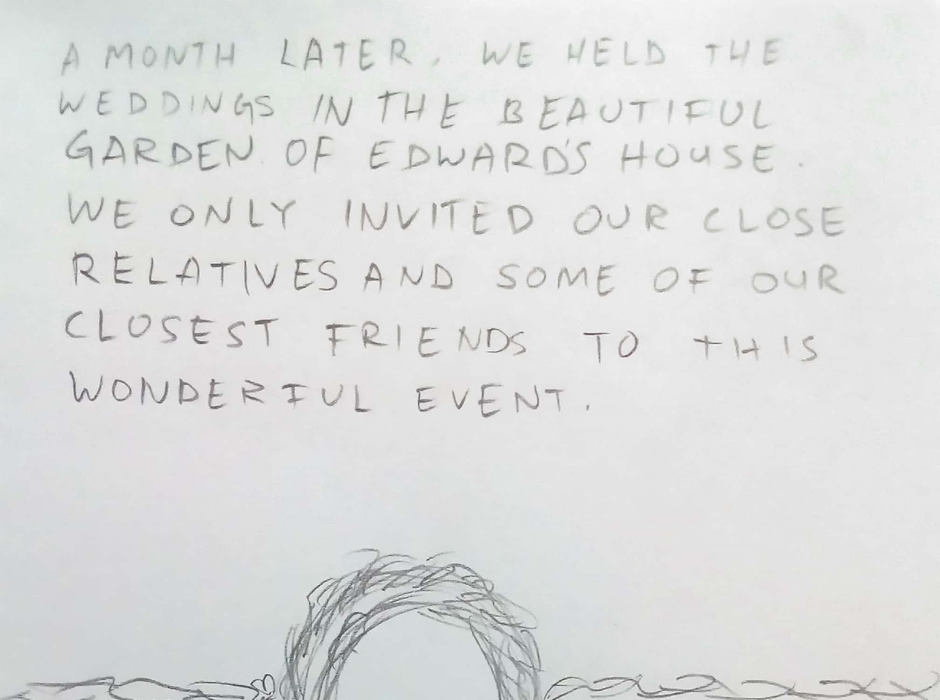 A MONTH LATER, WE HELD THE
WEDDINGS IN THE BEAUTIFUL
GARDEN OF EDWARD'S HOUSE.
WE ONLY INVITED OUR CLOSE
RELATIVES AND SOME OF OUR
CLOSEST FRIENDS TO THIS
WONDERFUL EVENT.